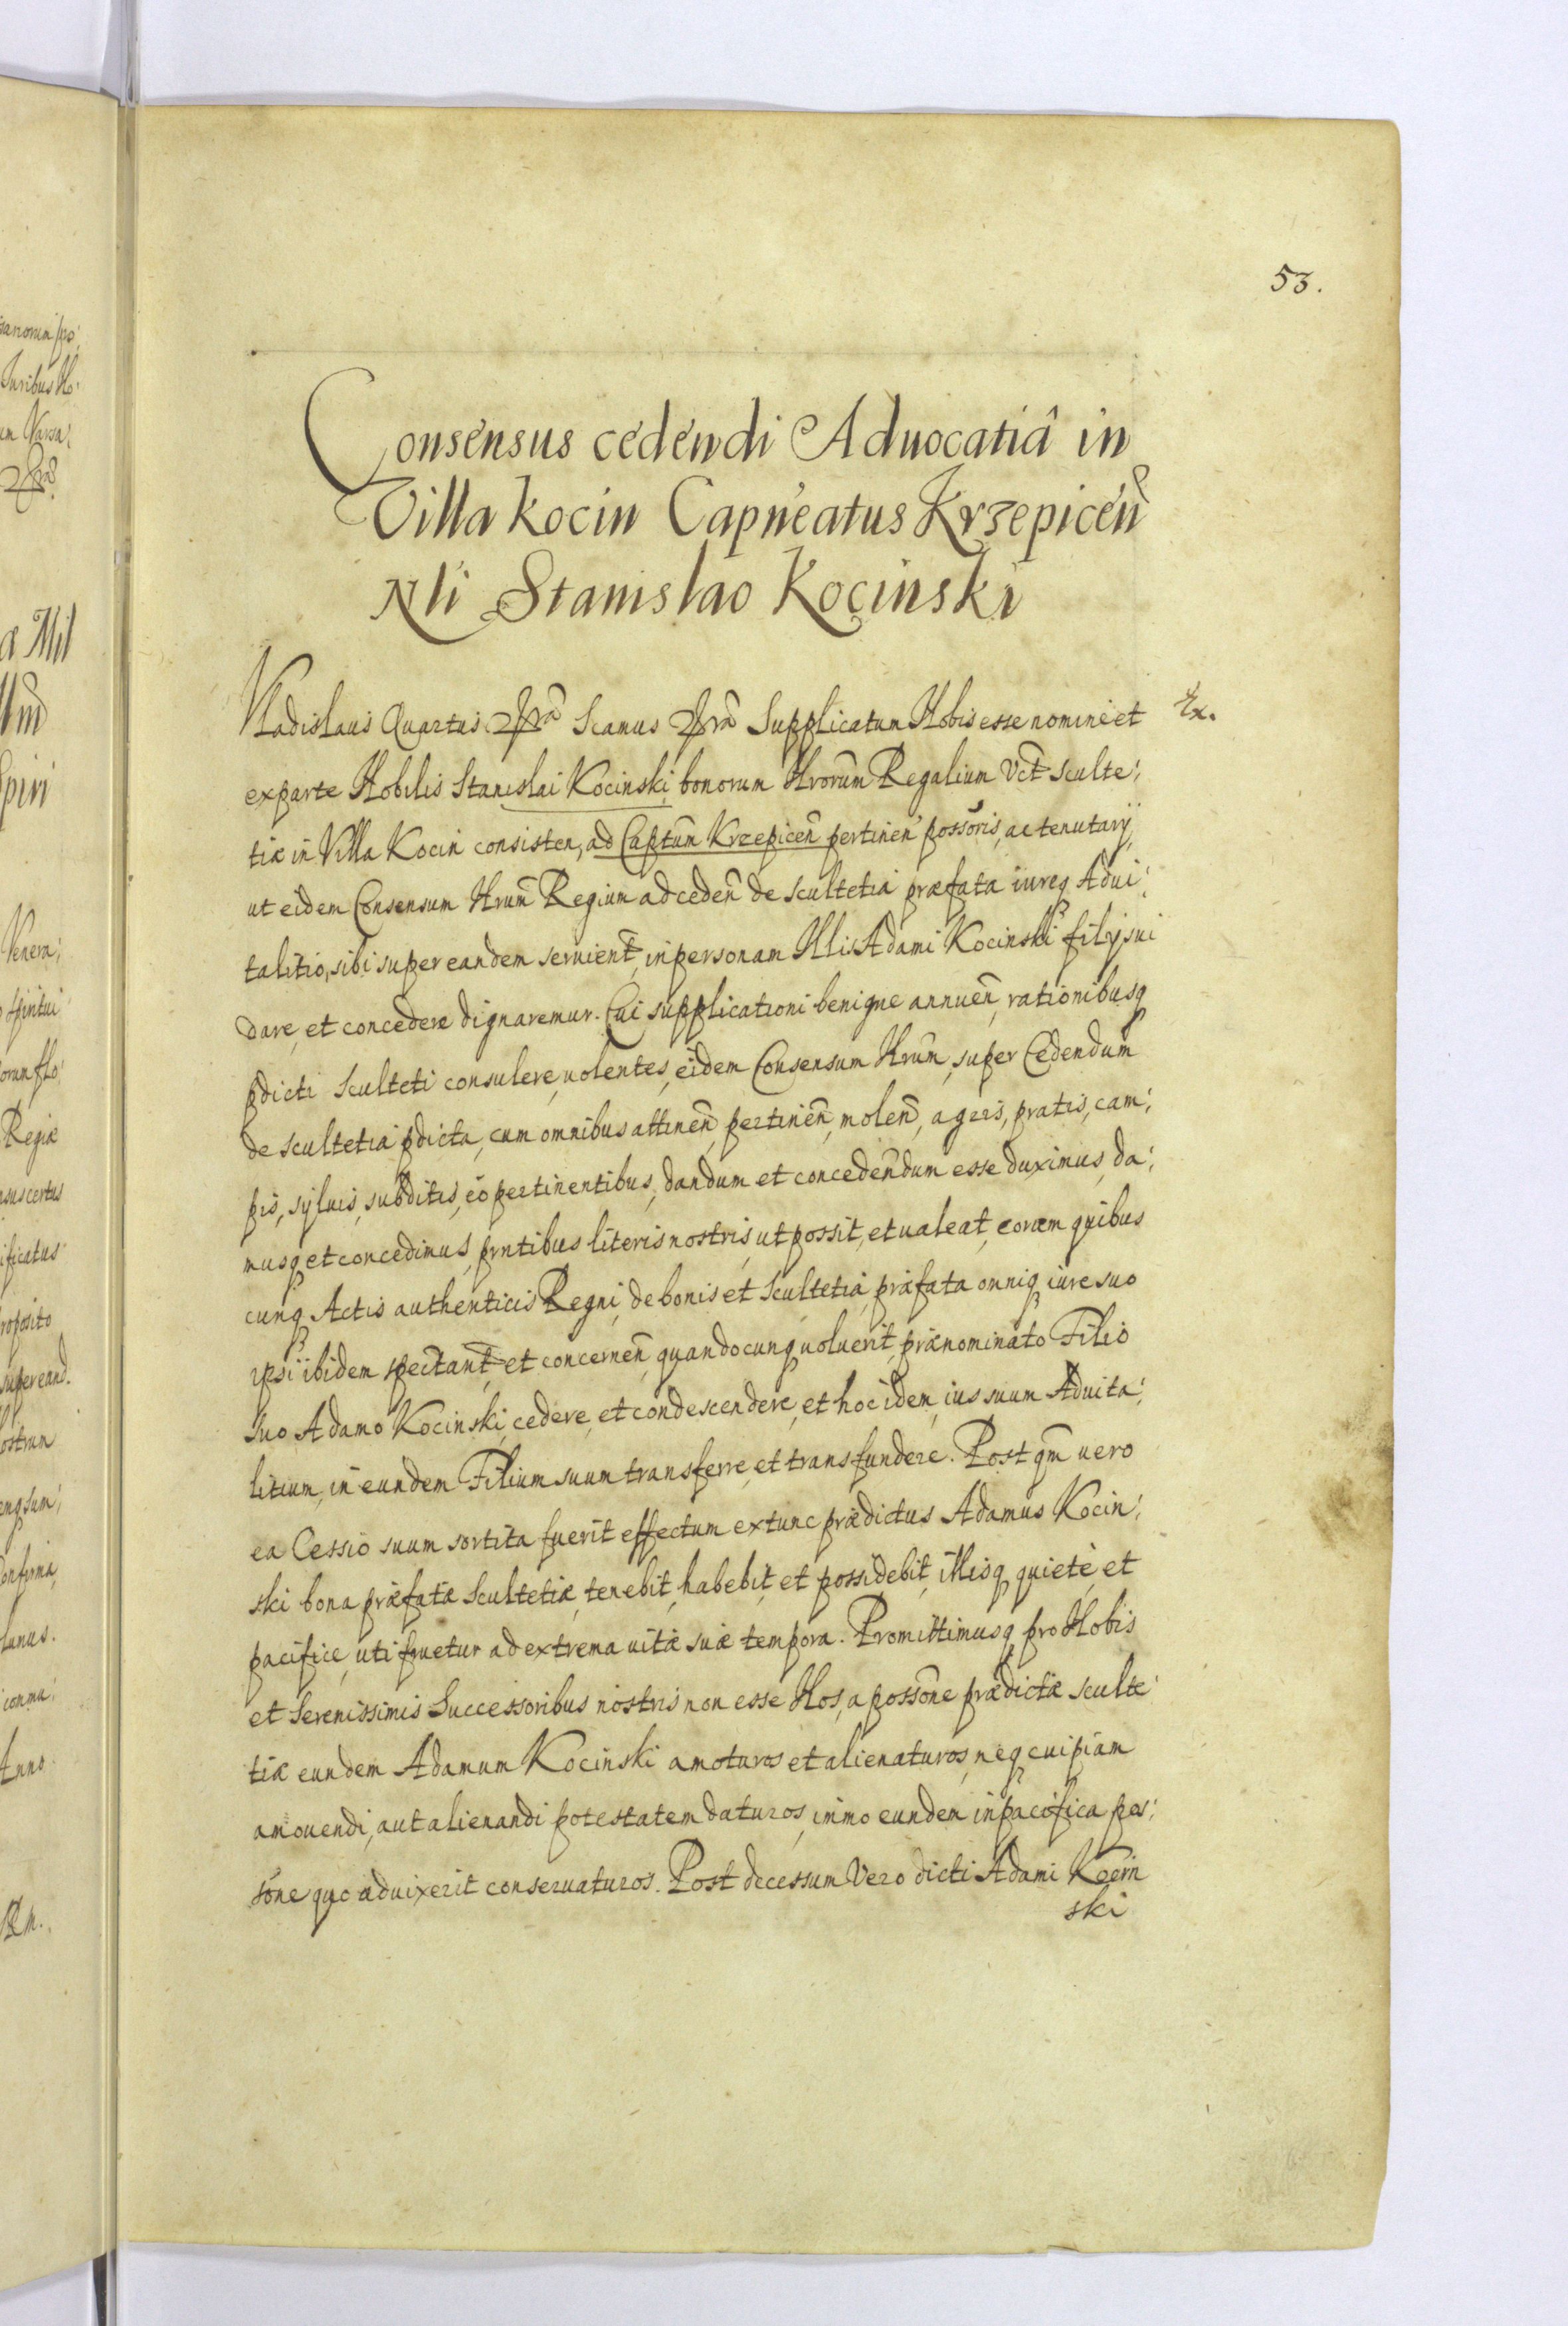 53.
Consensus cedendi Aduocatiâ in
Villa Kocin Capneatus Krzepicen̄
Nli Stanislao Kocinski
Vladislaus Quartus Scamus Supplicatum Nobis esse nomine et
Ex.
ex parte Nobilis Stanislai Kocinski bonorum Nrorum̄ Regalium Vct̄ Sculte:
tiæ in Villa Kocin consisten, ad Captum̄ Krzepicen̄ pertinen possoris, ac tenutarij,
ut eidem Consensum Nrum̄ Regium ad ceden̄ de Scultetia præfata iureq Adui:
talitio, sibi super eandem seruient̄, in personam Nlis Adami Kocinski filij sui
dare, et concedere dignaremur. Cui supplicationi benigne annuen̄, rationibusq
pdicti Sculteti consulere uolentes, eidem Consensum Nrum̄, super Cedendum
de Scultetia pdicta, cum omnibus attinen̄, pertinen̄, molen̄, agris, pratis, cam:
pis, syluis, subditis, eò pertinentibus, dandum et concedendum esse duximus, da:
musq et concedimus, pntibus literis nostris, ut possit, et ualeat, coram quibus
cunq Actis authenticis Regni, de bonis et Scultetia præfata omniq iure suo
ipsi ibidem spectant̄, et concernen̄, quandocunq uoluerit, prænominato Filio
suo Adamo Kocinski, cedere, et condescendere, et hoc idem ius suum Aduita:
litium, in eundem Filium suum transferre, et transfundere. Post qm̄ uero
ea Cessio suum sortita fuerit effectum extunc prædictus Adamus Kocin:
ski bona præfatæ Scultetiæ, tenebit, habebit, et possidebit, illisq quietè, et
pacifice, uti fruetur ad extrema uitæ suæ tempora. Promittimusq pro Nobis
et Serenissimis Successoribus nostris non esse Nos, a posson̄e prædictæ Sculte:
tiæ eundem Adamum Kocinski amoturos et alienaturos, neq cuipiam
amouendi, aut alienandi potestatem daturos, immo eundem in pacifica pos:
son̄e quo aduixerit conseruaturos. Post decessum Vero dicti Adami Kocin
ski